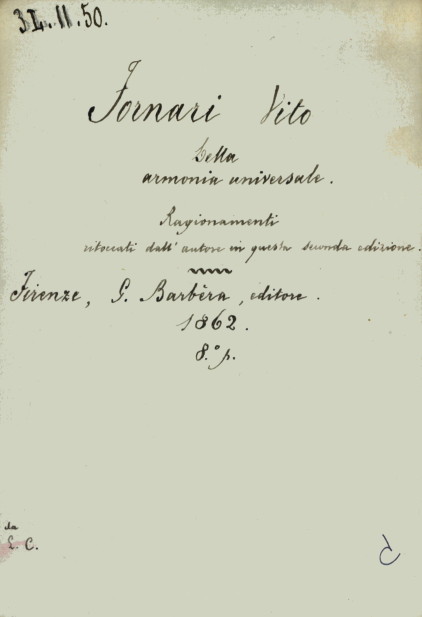 3L.11.50.
Fornari Vito
Della
armonia universale.
Ragionamenti
ritoccati dall' autore in questa seconda edizione.
Firenze, G. Barbèra, editore.
1862.
8.° p.
da
L. C.